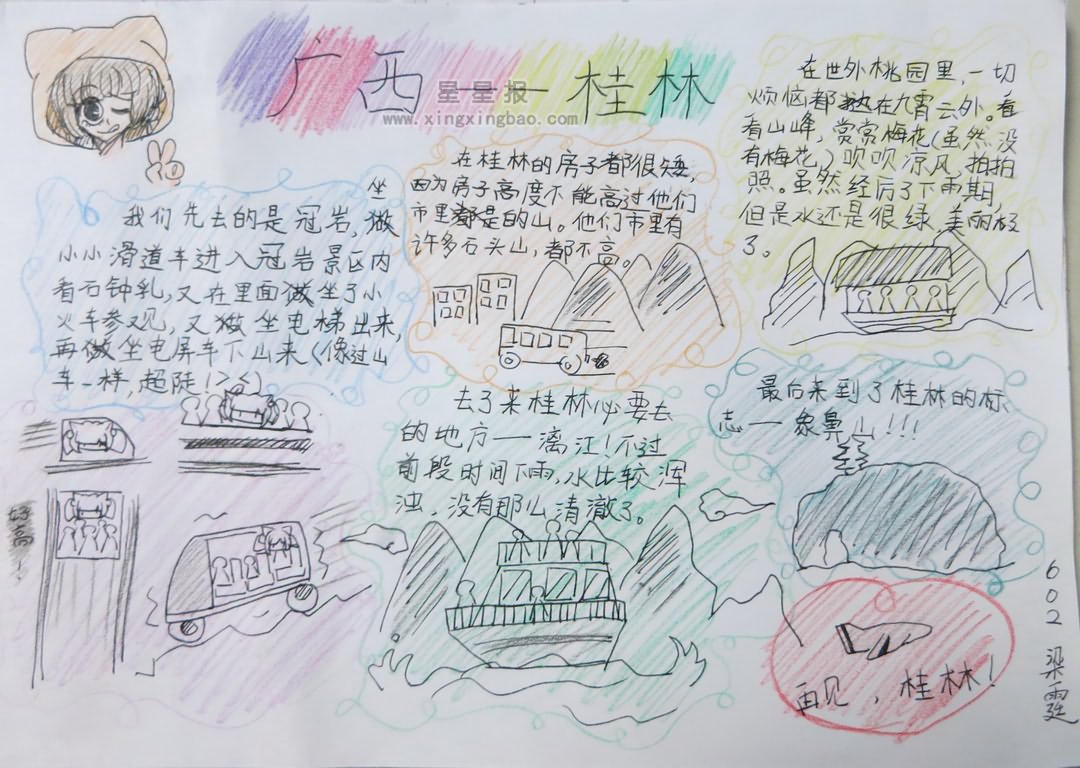 广西——桂林
星星报
www.xingxingbao.com
坐
我们先去的是冠岩,做
小小滑道车进入冠岩景区内
看石钟乳,又在里面做坐了小
火车参观,又做坐电梯出来,
再做坐电屏车下山来(像过山
车一样,超陡!><)
好高!
在桂林的房子都很矮,
因为房子高度不能高过他们
市里都是的山。他们市里有
许多石头山,都不高。
在世外桃园里,一切
烦恼都抛在九霄云外。看
看山峰,赏赏梅花(虽然没
有梅花,)吹吹凉风,拍拍
照。虽然经历了下雨期,
但是水还是很绿,美丽极
了。
去了来桂林必要去
的地方——漓江!不过
前段时间下雨,水比较浑
浊,没有那么清澈了。
最后来到了桂林的标
志——象鼻山!!!
再见,桂林!
602 梁霆